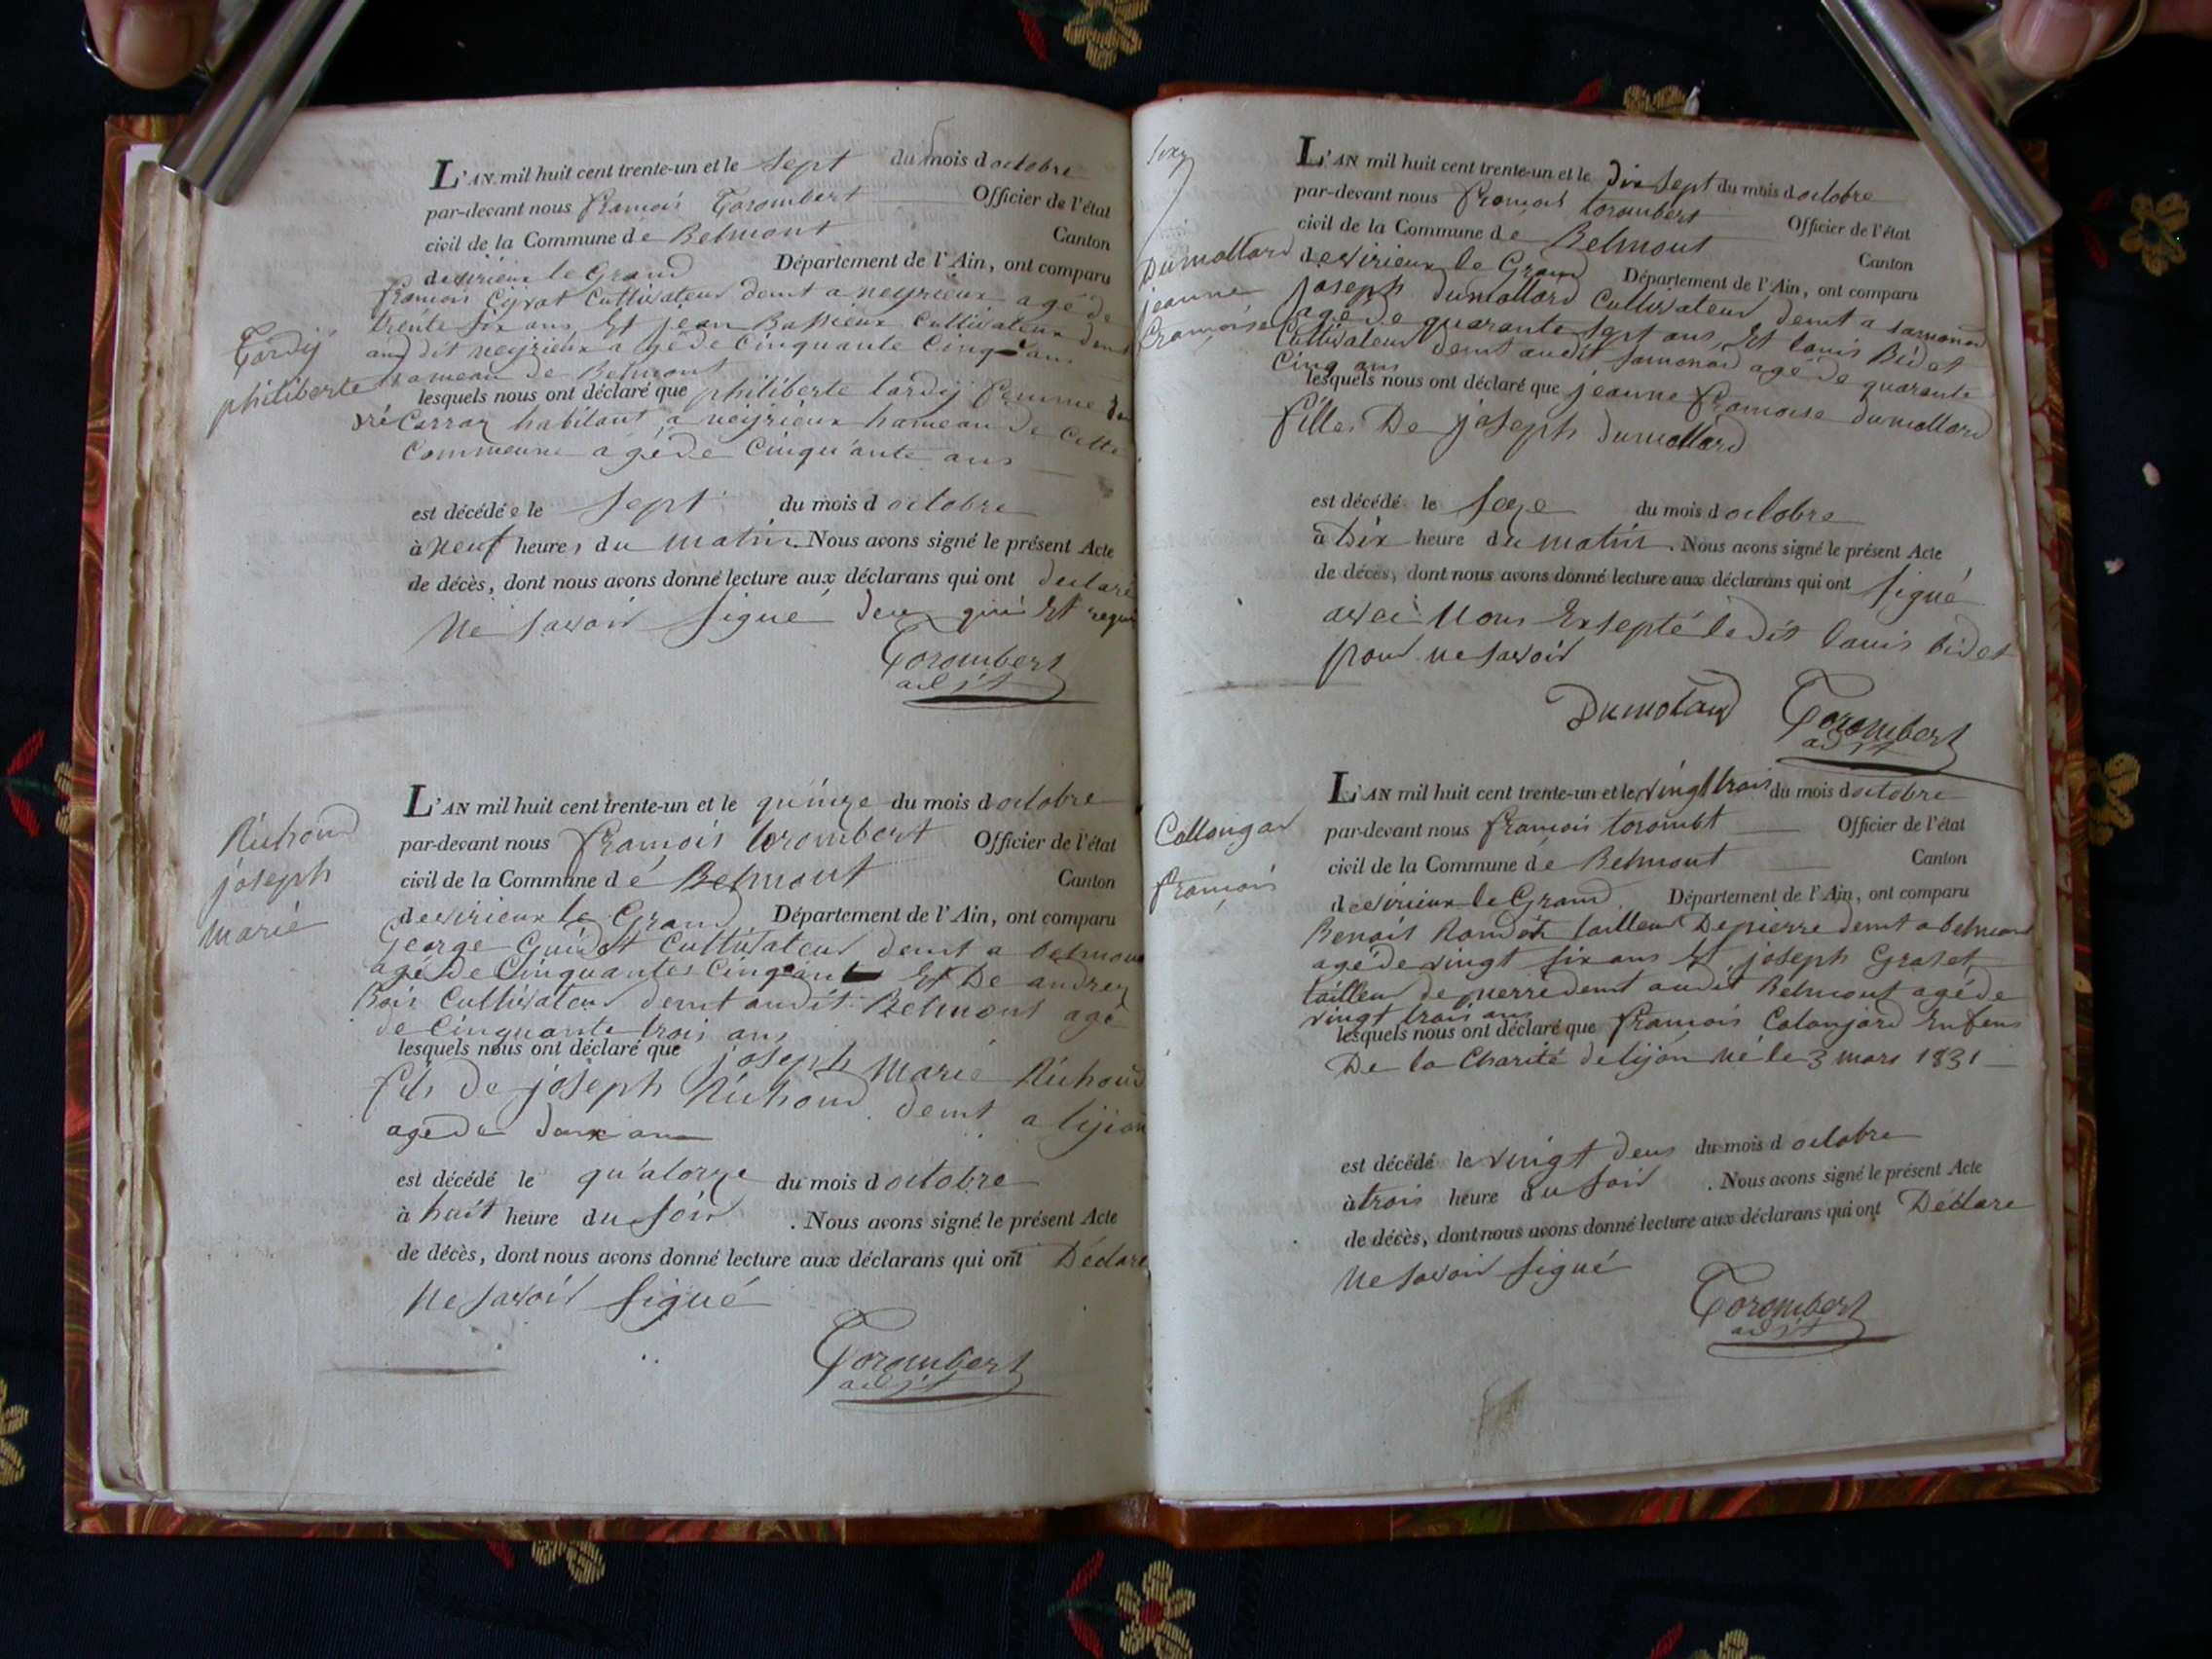 L'AN mil huit cent trente-un et le sept du mois d octobre
par-devant nous françois Torombert Officier de l'état
civil de la Commune de Belmont Canton
devirieux le Grand Département de l'Ain, ont comparu
françois Cyvat Cultivateur demt a neyrieux agé de
trente six ans Et jean Bassieux Cultivateur demt
audit neyrieux agé de Cinquante Cinq ans
hameau de Belmont
Tardij
philiberte
lesquels nous ont déclaré que philiberte tardij femme
Carraz habitant a neyrieux hameau de Cette
Commeune agéde Cinquante ans
est décédée le sept du mois d octobre
à neuf heures du matin. Nous avons signé le présent Acte
de décès, dont nous avons donné lecture aux déclarans qui ont declaré
Ne savoir signé deux qui Et requi
Torombert
adjt
Richond
joseph
marie
L'AN mil huit cent trente-un et le quinze du mois d octobre
par-devant nous françois torombert Officier de l'état
civil de la Commune de Belmont Canton
devirieux le Grand Département de l'Ain, ont comparu
George Guidot Cultivateur demt a belmont
agé De Cinquantes Cinq ans Et De andrez
Bois Cultivateur demt audit Belmont agé
de Cinquante trois ans
lesquels nous ont déclaré que joseph marie Richond
fils de joseph Richond demt a lijion
agé de deux ans
est décédé le quatorze du mois d octobre
à huit heure du soir . Nous avons signé le présent Acte
de décès, dont nous avons donné lecture aux déclarans qui ont Déclare
Ne savoir signé
Torombert
adjt
Dumollard
jeanne
françoise
L'AN mil huit cent trente-un et le Dix sept du mois d octobre
par-devant nous françois torombert Officier de l'état
civil de la Commune de Belmont Canton
devirieux le Grand Département de l'Ain, ont comparu
joseph dumollard Cultivateur demt a samonod
agé de quarante sept ans, Et louis Bidet
Cultivateur demt audit samonod agé de quarante
Cinq ans
lesquels nous ont déclaré que jeanne françoise dumollard
filles De joseph dumollard
est décédé le seze du mois d octobre
à Dix heure du matin . Nous avons signé le présent Acte
de décès, dont nous avons donné lecture aux déclarans qui ont signé
avec Nous Exsepté ledit louis bidet
pour ne savoir
Dumolard Torombert
adjt
Collongar
françois
L'AN mil huit cent trente-un et le vingt trois du mois d octobre
par-devant nous françois torombt Officier de l'état
civil de la Commune de Belmont Canton
devirieux le Grand Département de l'Ain, ont comparu
Benoit Rondot tailleur De pierre demt a belmont
agé de vingt six ans Et joseph Grasset
tailleur de pierre demt audit Belmont agé de
vingt trois ans
lesquels nous ont déclaré que françois Colonjard Enfens
De la Charité de lijon né le 3 mars 1831
est décédé le vingt deus du mois d octobre
à trois heure du soir . Nous avons signé le présent Acte
de décès, dont nous avons donné lecture aux déclarans qui ont Déclare
Ne savoir signé
Torombert
adjt